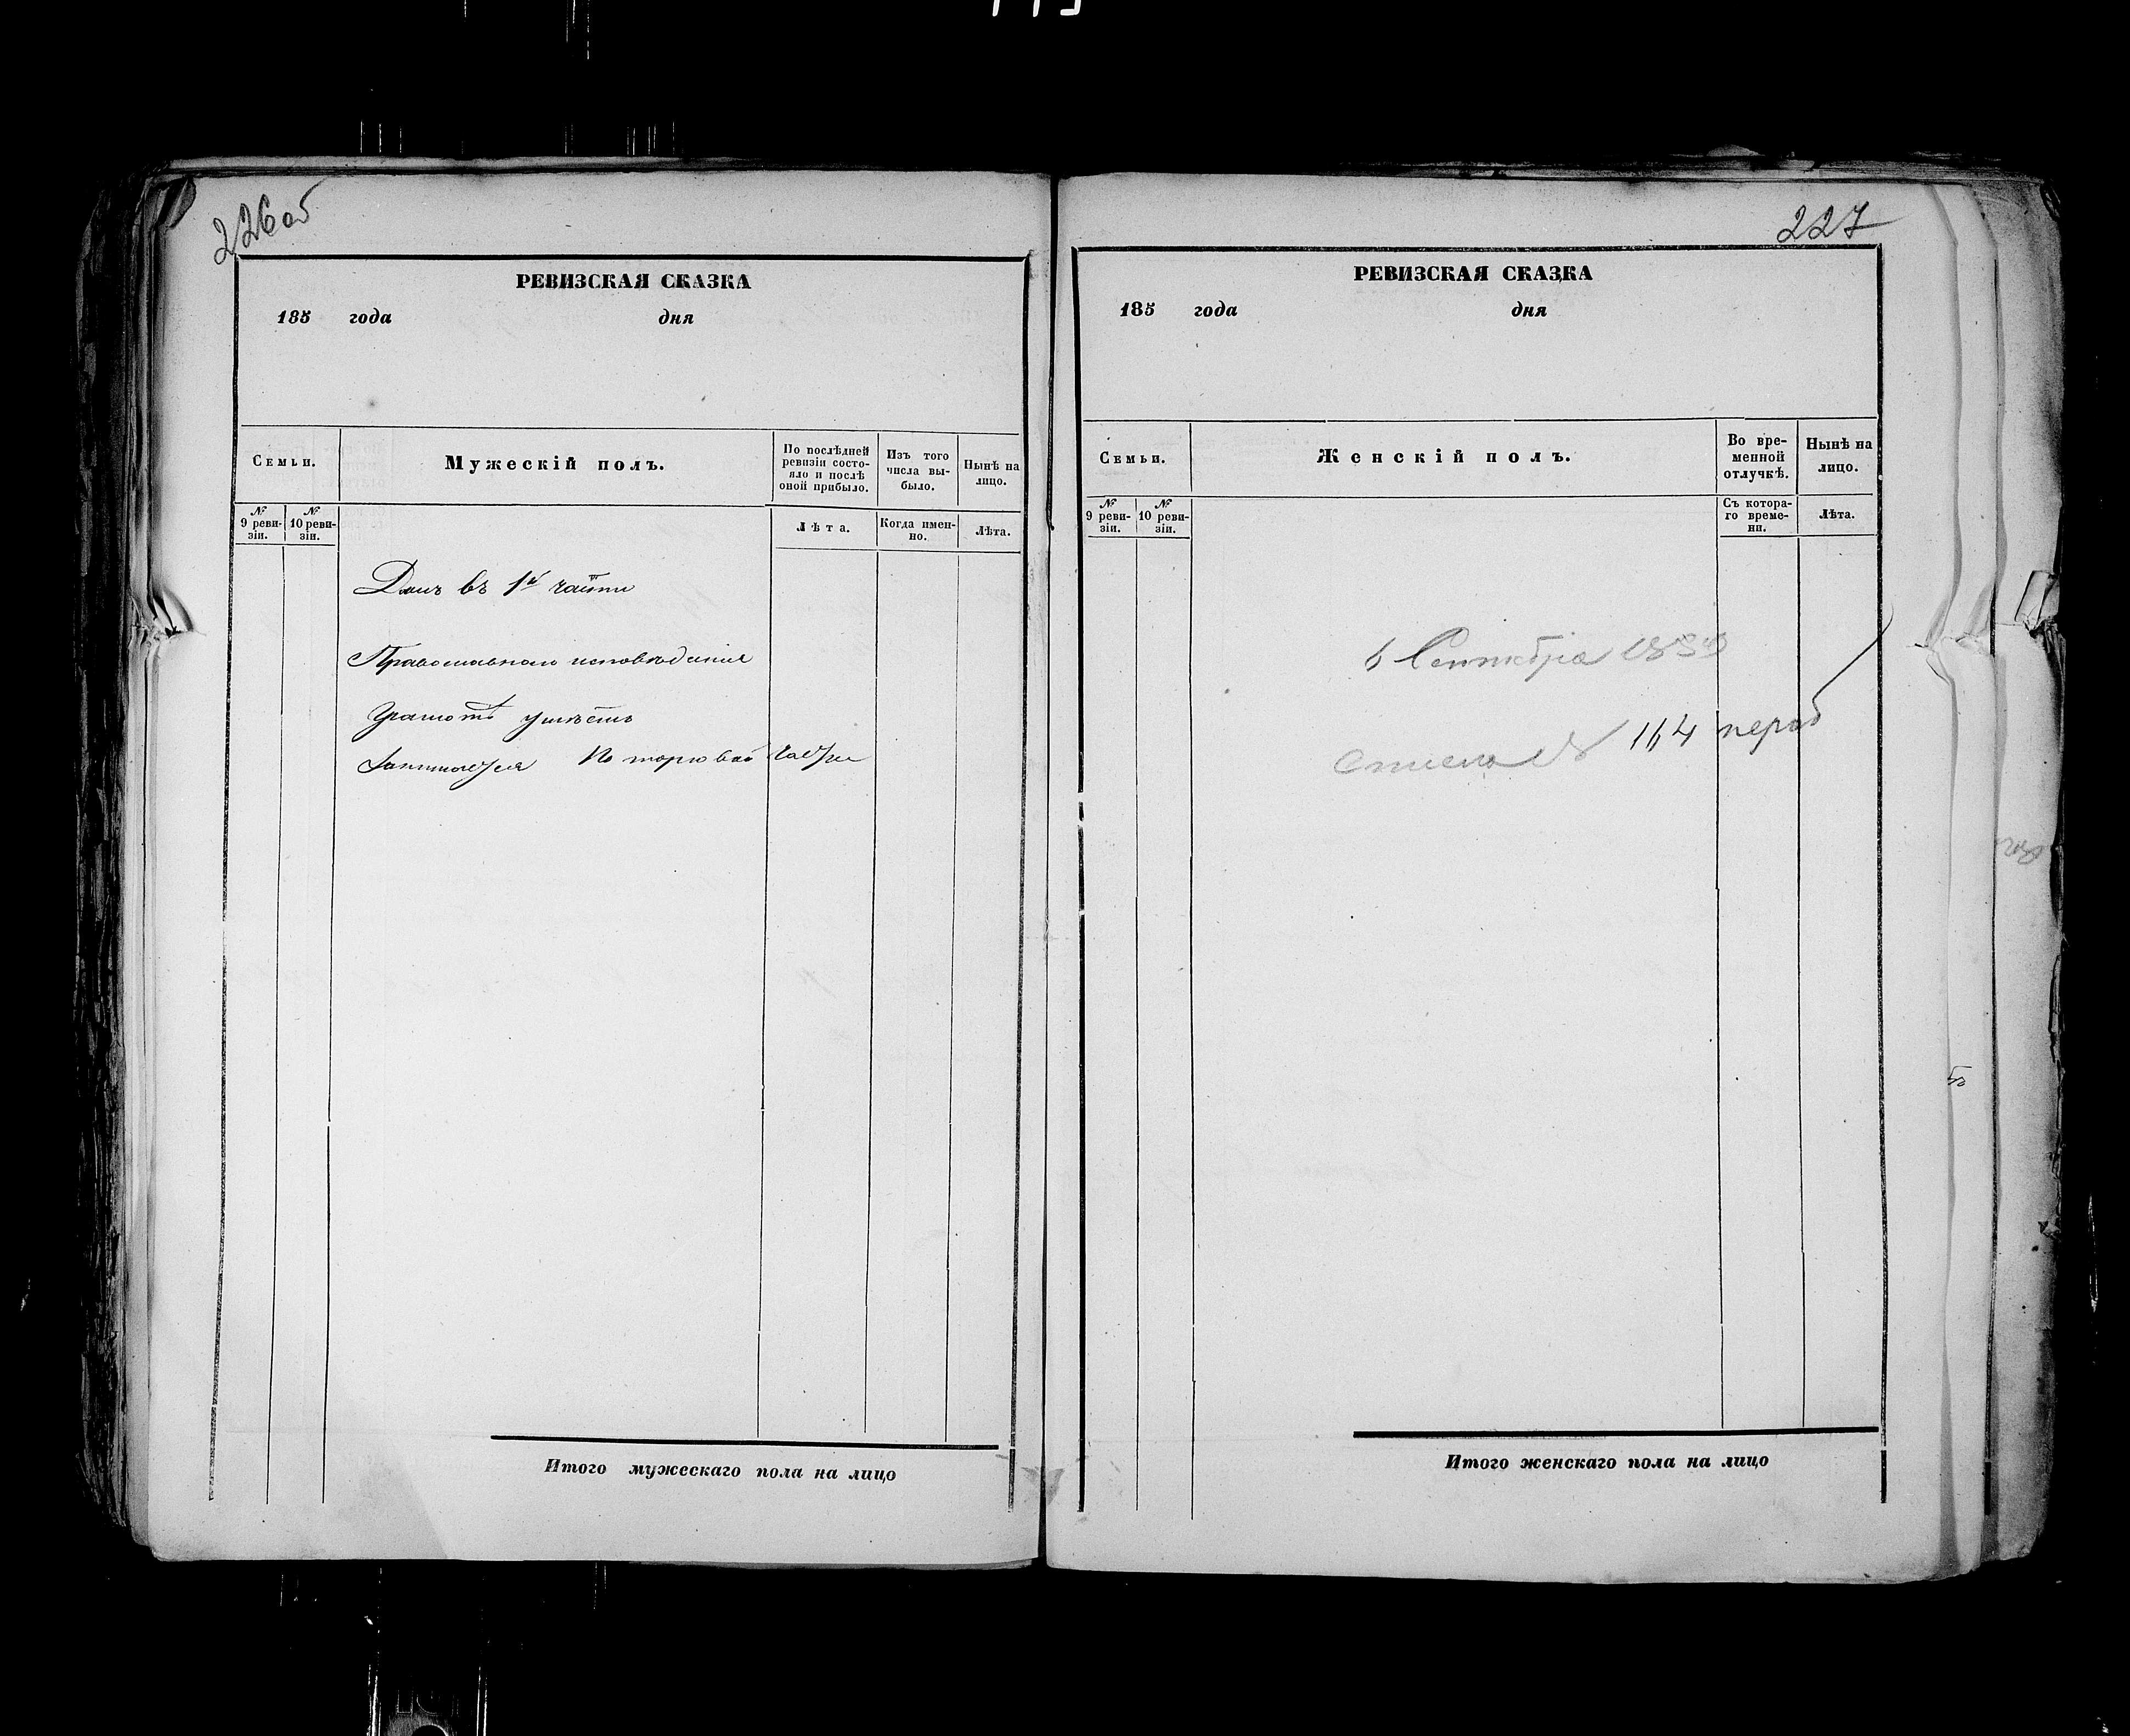 226об
РЕВИЗСКАЯ СКАЗКА
185 года дня
Семьи.
Мужескій полъ.
По послѣдней
ревизіи состо-
яло и послѣ
оной прибыло.
Изъ того
числа вы-
было.
Нынѣ на
лицо.
№
9 реви-
зіи.
№
10 реви-
зіи.
Лѣта.
Когда имен-
но.
Лѣта.
Домъ въ 1й части
Православнаго исповѣданія
Грамотѣ умѣетъ
Занимается По торговой части
Итого мужескаго пола на лицо
227
РЕВИЗСКАЯ СКАЗКА
185 года дня
Семьи.
Женскій полъ.
Во вре-
менной
отлучкѣ.
Нынѣ на
лицо.
№
9 реви-
зіи.
№
10 реви-
зіи.
Съ котора-
го време-
ни.
Лѣта.
6 Сентября
164
Итого женскаго пола на лицо